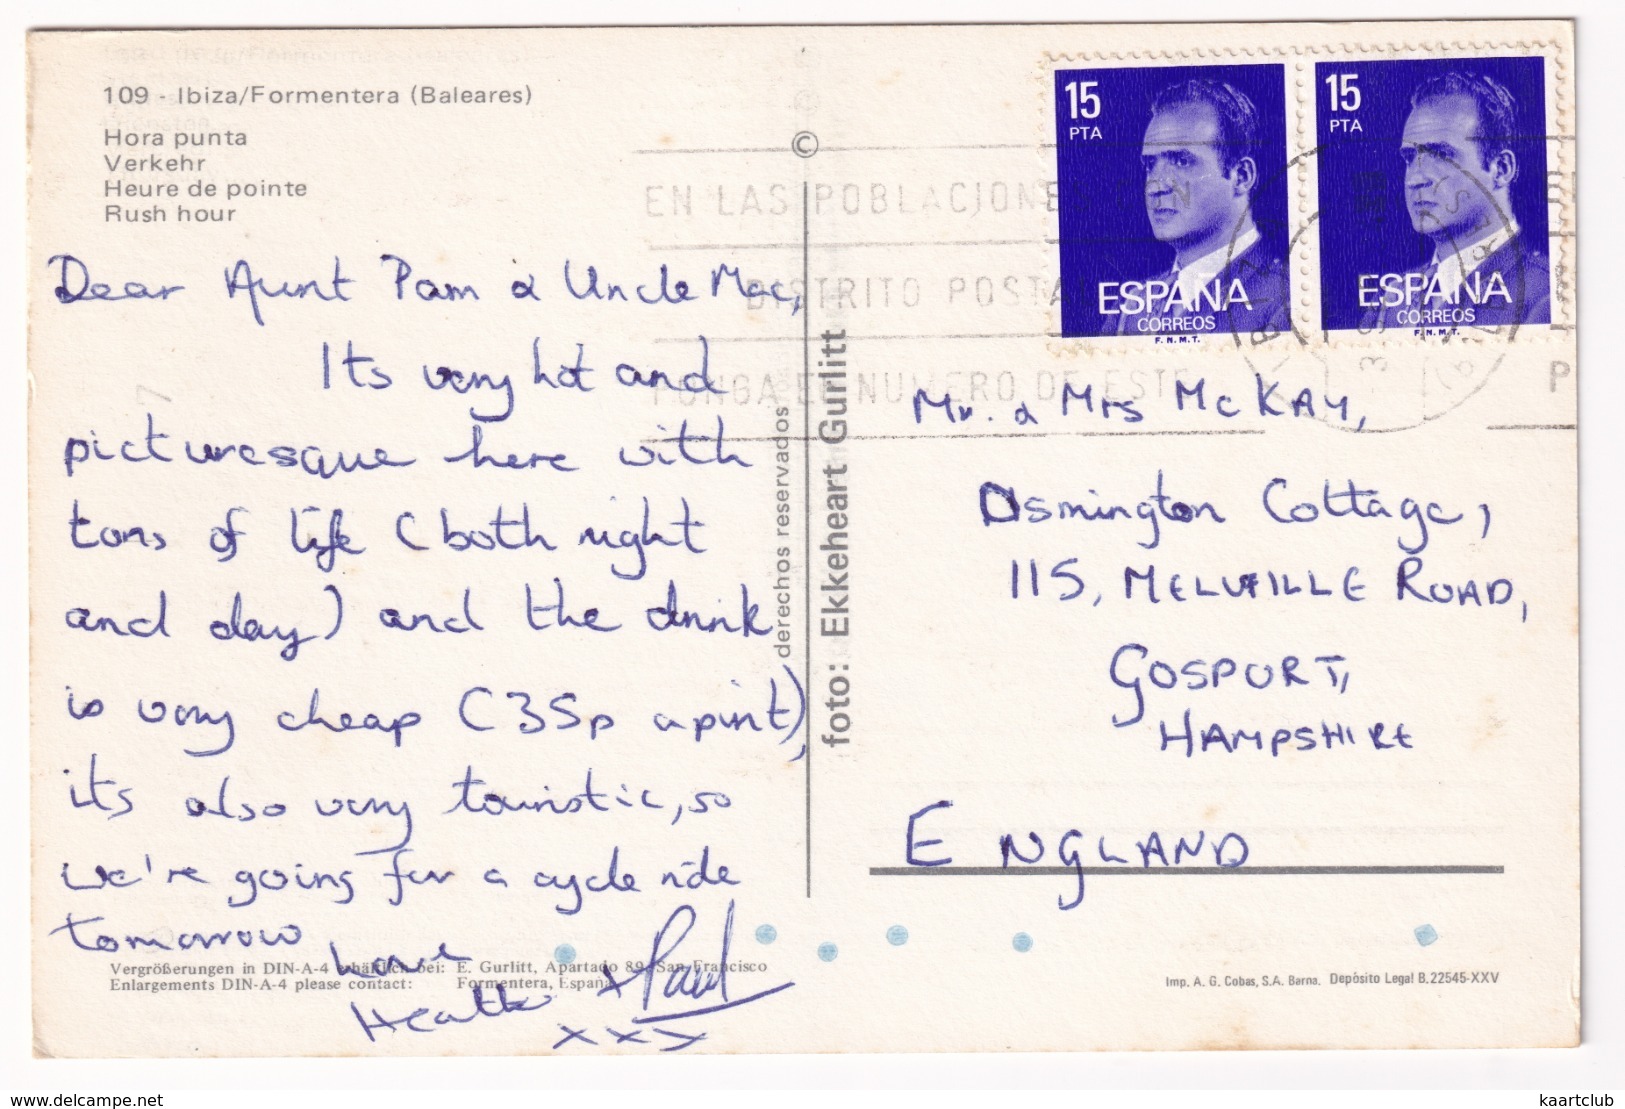 109 - Ibiza/Formentera (Baleares)
Hora punta
Verkehr
Heure de pointe
Rush hour
Dear Aunt Pam & Uncle Mac,
Its very hot and
picturesque here with
tons of life (both night
and day) and the drink
is very cheap (35p a pint),
its also very touristic, so
we're going for a cycle ride
tomorrow
Love
Heather + Paul
x x x
Vergrößerungen in DIN-A-4 erhältlich bei: E. Gurlitt, Apartado 89, San Francisco
Enlargements DIN-A-4 please contact: Formentera, España
©
derechos reservados
foto: Ekkeheart Gurlitt
EN LAS POBLACIONES CON
DISTRITO POSTAL
PONGA EL NUMERO DE ESTE
15
PTA
ESPAÑA
CORREOS
F.N.M.T.
15
PTA
ESPAÑA
CORREOS
F.N.M.T.
Mr. & Mrs McKAY,
Osmington Cottage,
115, MELVILLE ROAD,
GOSPORT,
HAMPSHIRE
ENGLAND
Imp. A. G. Cobas, S.A. Barna. Depósito Legal B.22545-XXV
www.delcampe.net
kaartclub